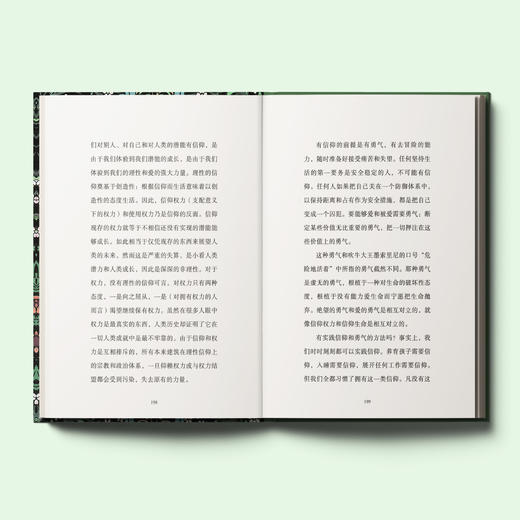 们对别人、对自己和对人类的潜能有信仰，是
由于我们体验到我们潜能的成长，是由于我们
体验到我们的理性和爱的强大力量。理性的信
仰奠基于创造性；根据信仰而生活意味着以创
造性的态度生活。因此，信仰权力（支配意义
下的权力）和使用权力乃是信仰的反面。信仰
现存的权力就等于不相信还没有实现的潜能能
够成长。如此相当于仅凭现存的东西来展望人
类的未来，然而这是严重的失算，是小看人类
潜力和人类成长，因此是深深的非理性。对于
权力，没有理性的信仰可言，对权力只有两种
态度，一是向之屈从，一是（对拥有权力的人
而言）渴望继续保有权力。虽然在很多人眼中
权力是最真实的东西，人类历史却证明了它在
一切人类成就中是最不牢靠的。由于信仰和权
力是互相排斥的，所有本来建筑在理性信仰上
的宗教和政治体系，一旦仰赖权力或与权力结
盟都会受到污染，失去原有的力量。
198
有信仰的前提是有勇气，有去冒险的能
力，随时准备好接受痛苦和失望。任何坚持生
活的第一要务是安全稳定的人，不可能有信
仰。任何人如果把自己关在一个防御体系中，
以保持距离和占有作为安全措施，都是把自己
变成一个囚犯。要能够爱和被爱需要勇气：断
定某些价值无比重要的勇气，把一切押注在这
些价值上的勇气。
这种勇气和吹牛大王墨索里尼的口号“危
险地活着”中所指的勇气截然不同。那种勇气
是虚无的勇气，根植于一种对生命的破坏性态
度，根植于没有能力爱生命而宁愿把生命抛
弃。绝望的勇气和爱的勇气是相互对立的，就
像信仰权力和信仰生命是相对立的。
有实践信仰和勇气的方法吗？事实上，我
们时时刻刻都可以实践信仰。养育孩子需要信
仰，入睡需要信仰，展开任何工作需要信仰。
但我们全都习惯了拥有这一类信仰。凡没有这
199